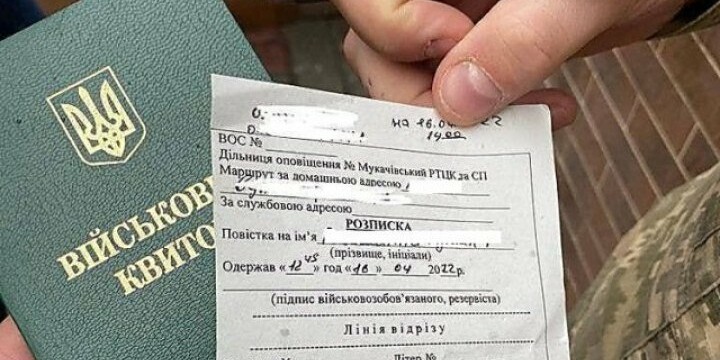 ВІЙСЬКОВ
КВИТО
на 16.04 22
ВОС №
Дільниця оповіщення № Мукачівський РТЦК та СП
Маршрут за домашньою адресою
За службовою адресою
РОЗПИСКА
Повістка на ім'я
(прізвище, ініціали)
Одержав «12 45» год «16» 04 2022р.
(підпис військовозобов'язаного, резервіста)
Лінія відрізу
Літер №